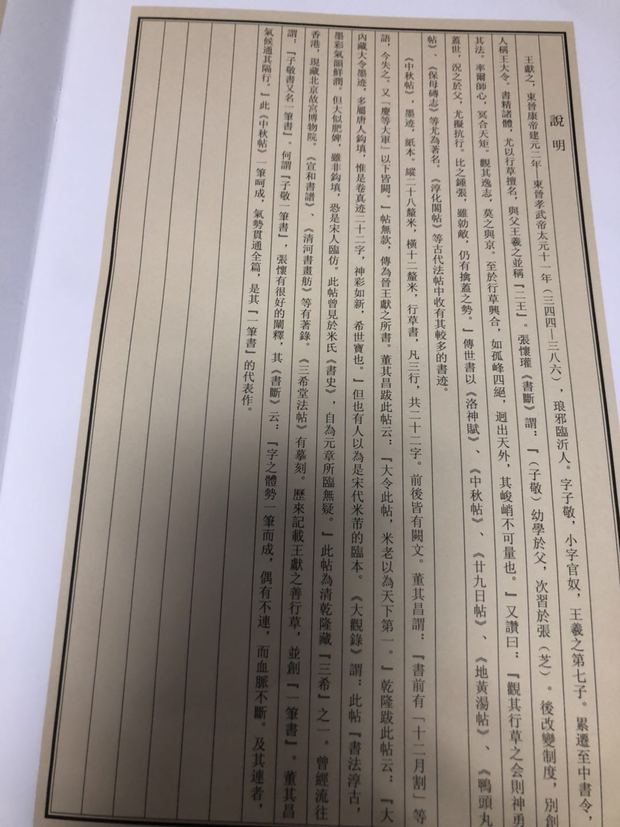 說明
王獻之，東晉康帝建元二年　東晉孝武帝太元十一年（三四四—三八六），琅邪臨沂人。字子敬，小字官奴，王羲之第七子。累遷至中書令，
人稱王大令。書精諸體，尤以行草擅名，與父王羲之並稱『二王』。張懷瓘《書斷》謂：『（子敬）幼學於父，次習於張（芝）。後改變制度，別創
其法。率爾師心，冥合天矩。觀其逸志，莫之與京。至於行草興合，如孤峰四絕，迥出天外，其峻峭不可量也。』又讚曰：『觀其行草之會則神勇
蓋世，況之於父，尤擬抗行。比之鍾張，雖勍敵，仍有擒蓋之勢。』傳世書以《洛神賦》、《中秋帖》、《廿九日帖》、《地黃湯帖》、《鴨頭丸
帖》、《保母磚志》等尤為著名。《淳化閣帖》等古代法帖中收有其較多的書迹。
《中秋帖》，墨迹，紙本。縱二十八釐米，橫十二釐米，行草書，凡三行，共二十二字。前後皆有闕文。董其昌謂：『書前有「十二月割」等
語，今失之。又「慶等大軍」以下皆闕。』帖無款，傳為晉王獻之所書。董其昌跋此帖云：『大令此帖，米老以為天下第一。』乾隆跋此帖云：『大
內藏大令墨迹，多屬唐人鈎填，惟是卷真迹二十二字，神彩如新，希世寶也。』但也有人以為是宋代米芾的臨本。《大觀錄》謂：此帖『書法淳古，
墨彩氣韻鮮潤。但大似肥婢，雖非鈎填，恐是宋人臨仿。此帖曾見於米氏《書史》，自為元章所臨無疑。』此帖為清乾隆藏『三希』之一。曾經流往
香港，現藏北京故宮博物院。《宣和書譜》、《清河書畫舫》等有著錄。《三希堂法帖》有摹刻。歷來記載王獻之善行草，並創『一筆書』。董其昌
謂：『子敬書又名一筆書』。何謂『子敬一筆書』，張懷有很好的闡釋，其《書斷》云：『字之體勢一筆而成，偶有不連，而血脈不斷。及其連者，
氣候通其隔行。』此《中秋帖》一筆呵成，氣勢貫通全篇，是其『一筆書』的代表作。